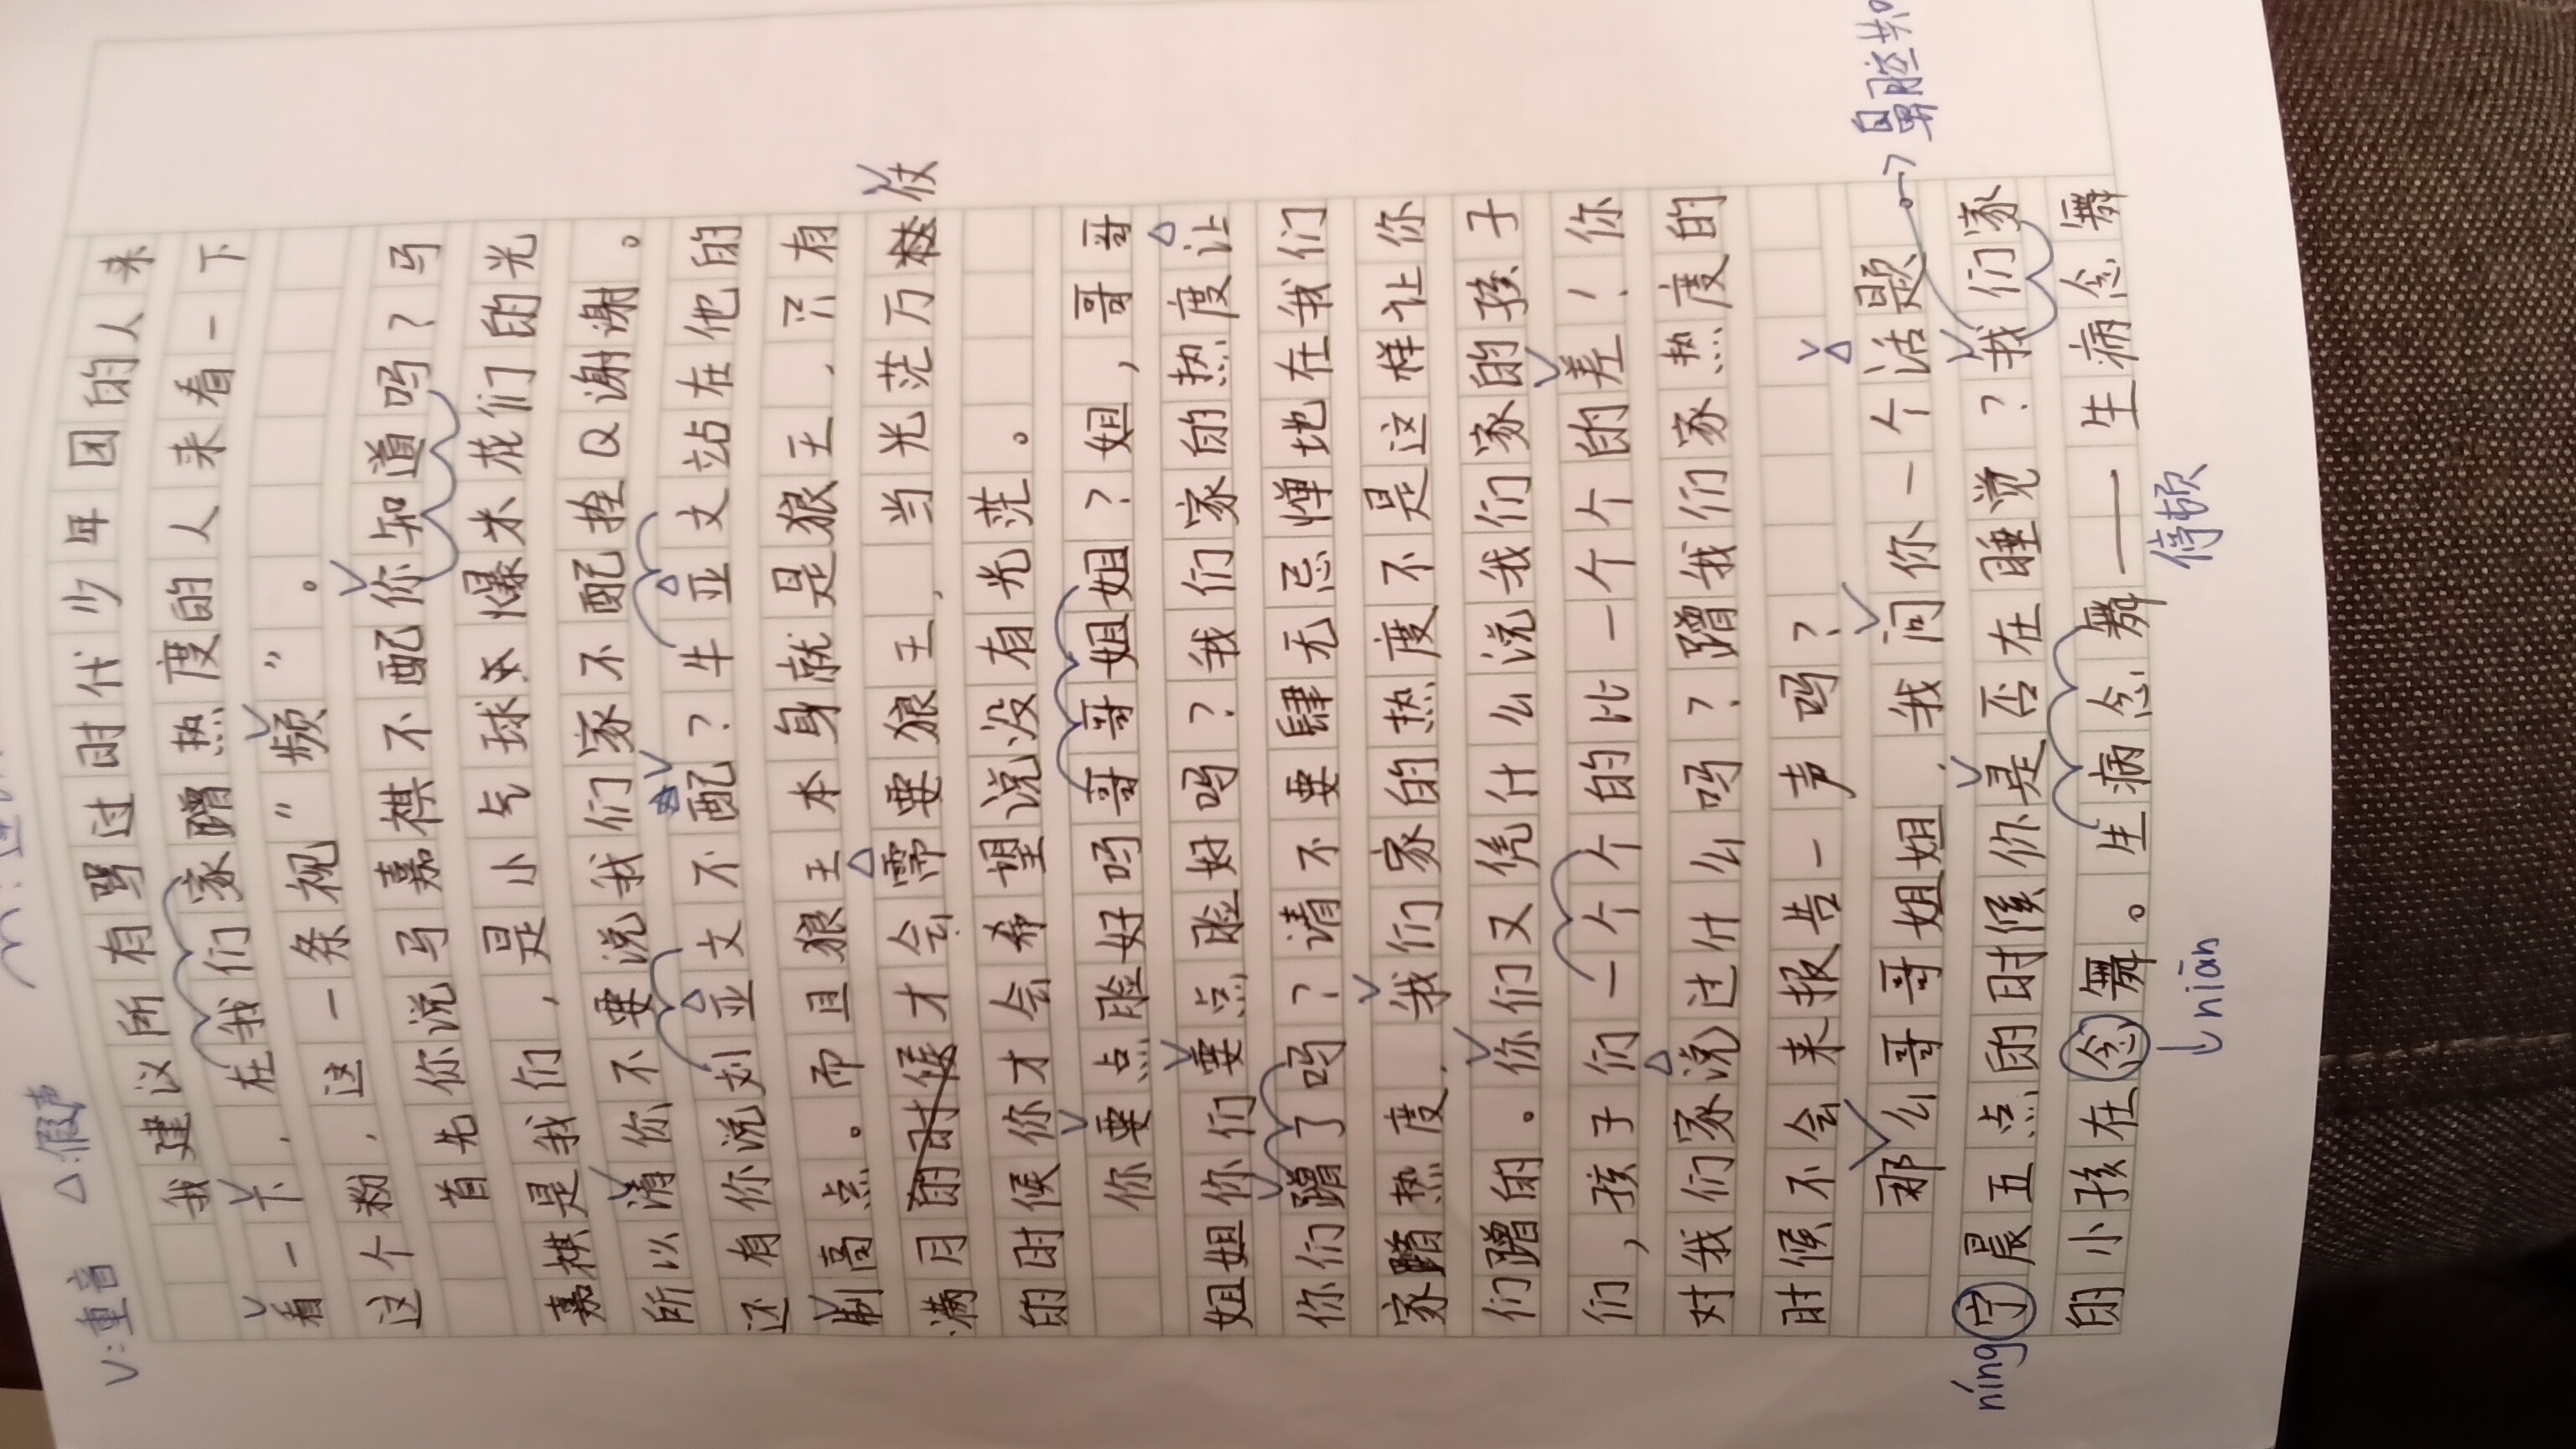 V:重音 △:假声
我建议所有骂过时代少年团的人来
看一下,在我们家蹭热度的人来看一下
这个粉,这一条视“频”。
首先你说马嘉祺不配你知道吗?马
嘉祺是我们,是小气球爆米花们的光
所以请你不要说我们家不配拴Q谢谢。
还有你说刘亚文不配?牛亚文站在他的
制高点。而且狼王本身就是狼王,只有
满月才会需要狼王,当光芒万
仗
的时候你才会希望说没有光芒。
你要点脸好吗哥哥姐姐?姐,哥哥
姐姐你们要点脸好吗?我们家的热度让
你们蹭了吗?请不要肆无忌惮地在我们
家蹭热度,我们家的热度不是这样让你
们蹭的。你们又凭什么说我们家的孩子
们,孩子们一个个的比一个个的差!你
对我们家说过什么吗?蹭我们家热度的
时候不会来报告一声吗?
那么哥哥姐姐,我问你一个话题
鼻腔共
宁晨五点的时候你是否在睡觉?我们家
níng
的小孩在念舞。生病念舞——生病念舞
nián
停顿